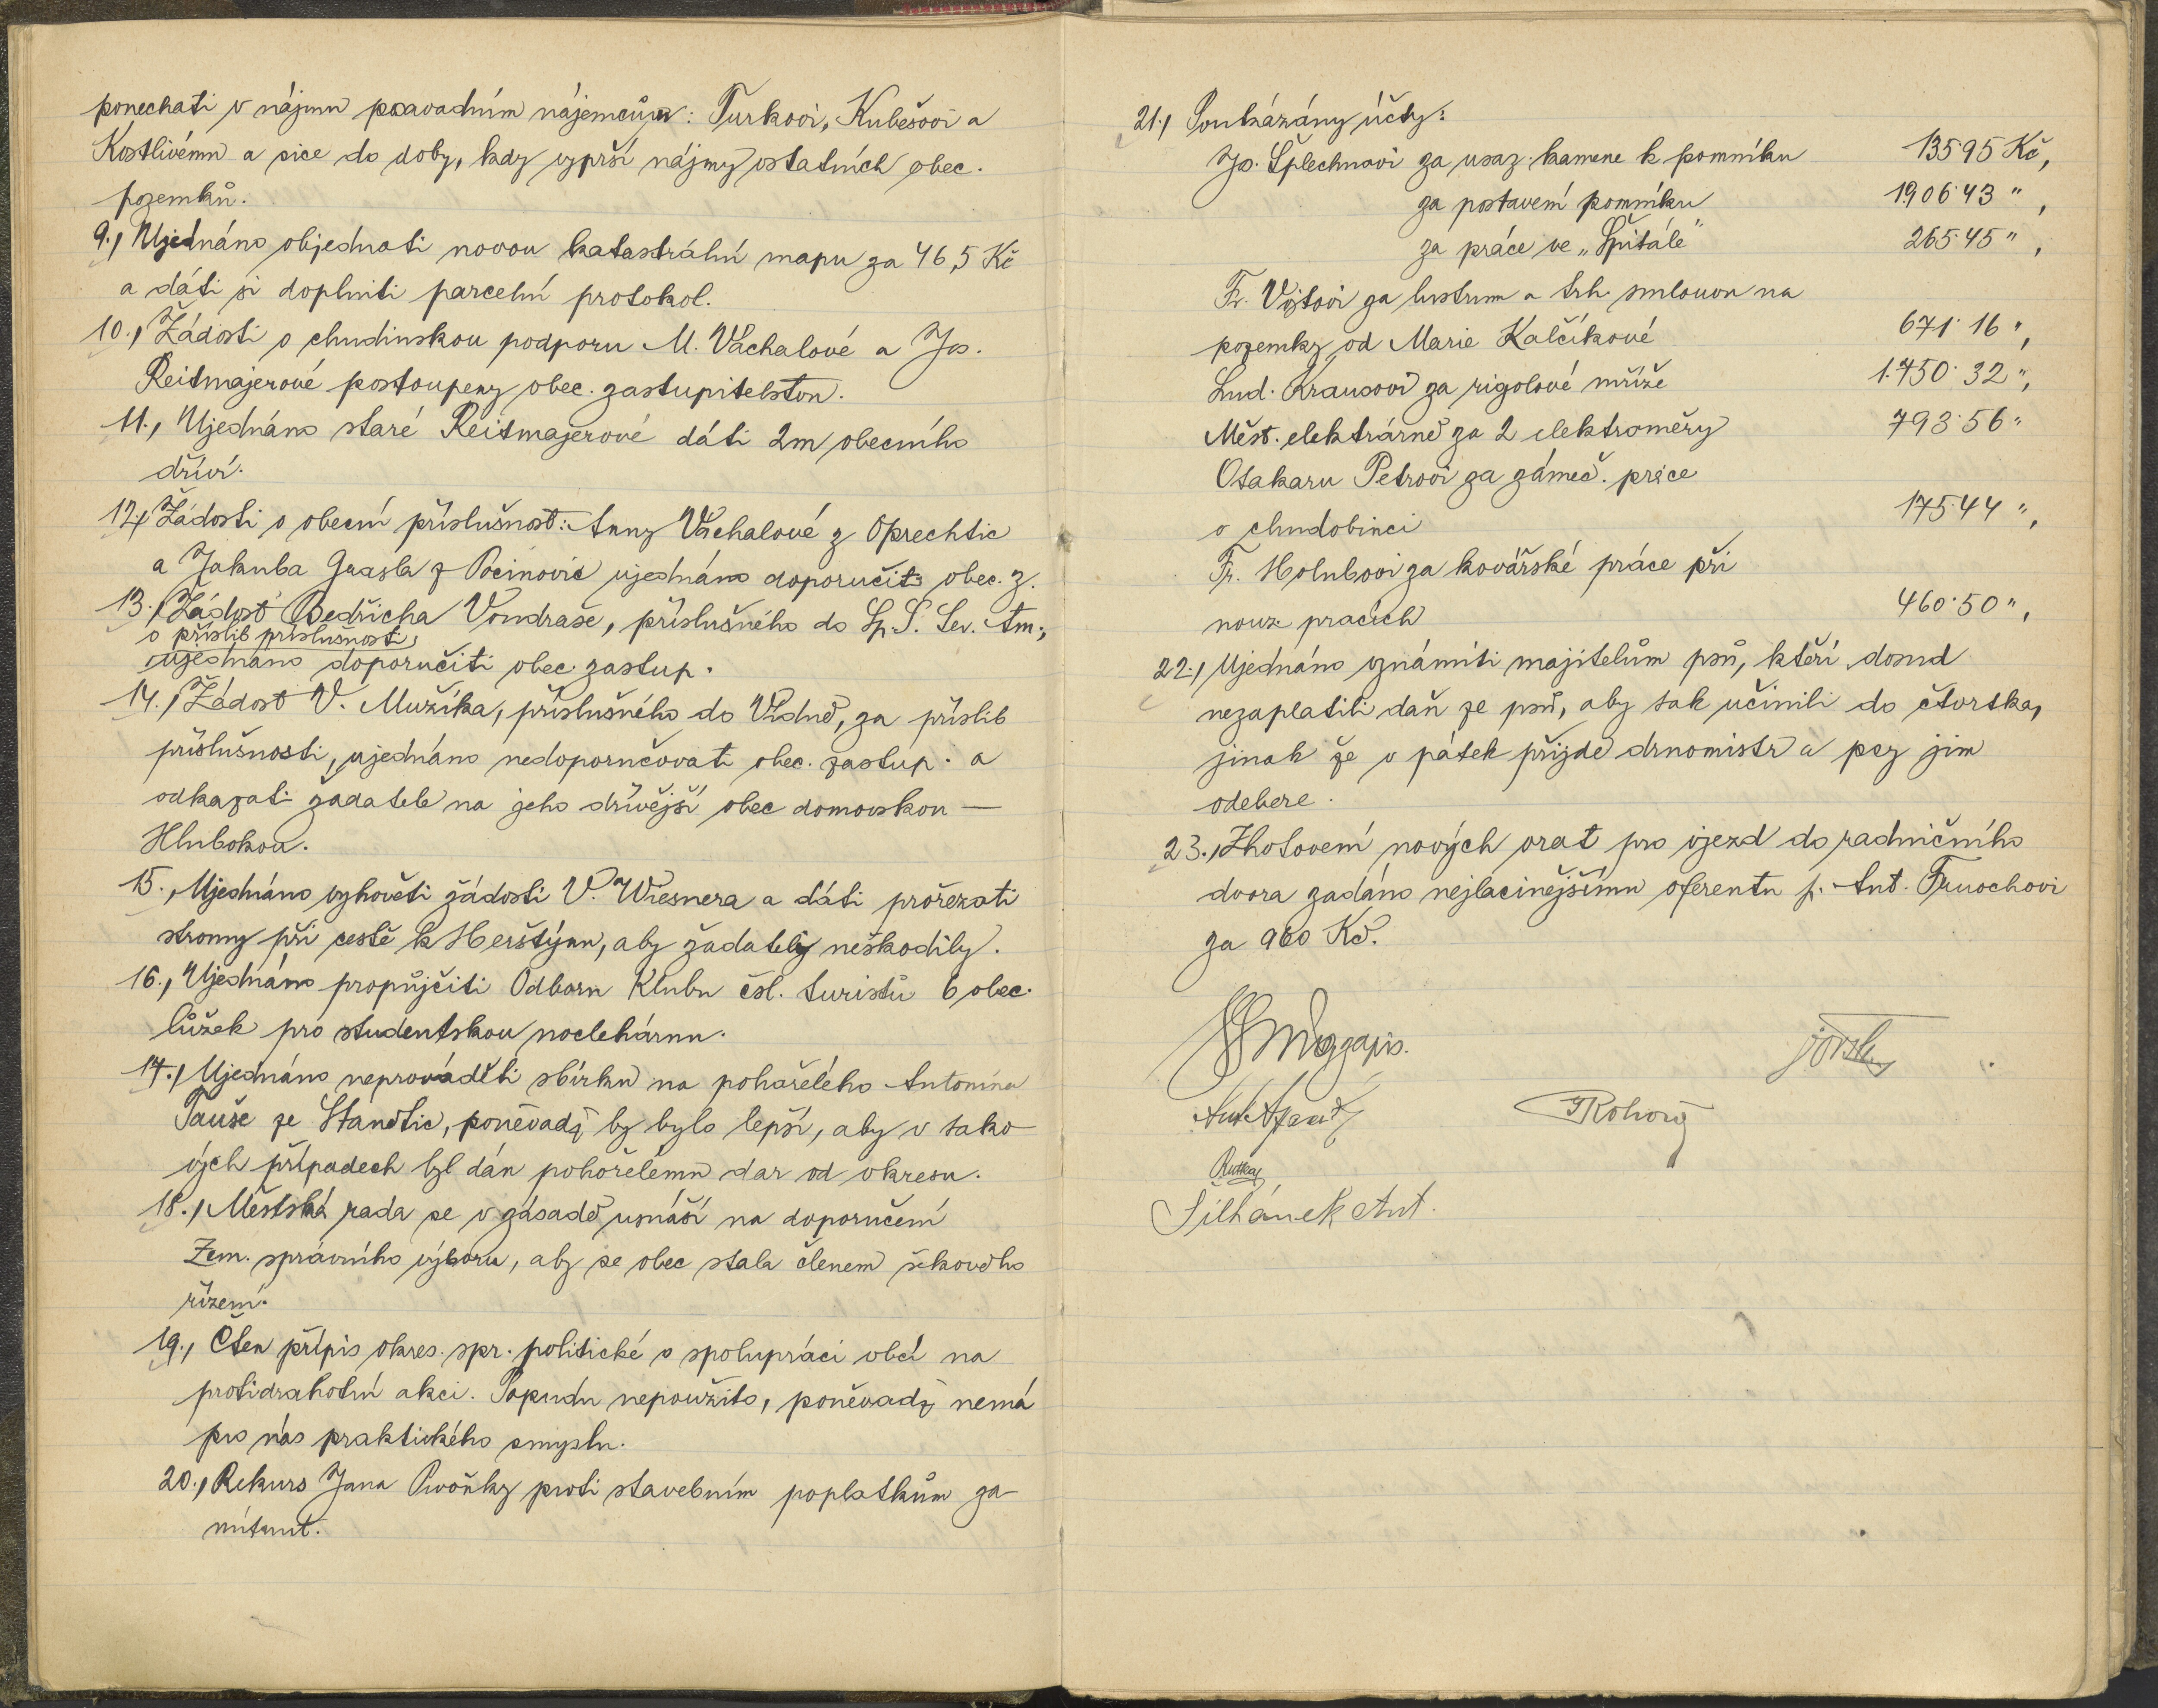 ponechati v nájmu pravadním nájemcům: Turkovi, Kubešovi a
Kostlivému a sice do doby, kdy vyprší nájmy ostatních obec.
pozemků.
9., Ujednáno objednati novou katastrální mapu za 46,5 Kč
a dáti si doplniti parcelní protokol.
10., Žádosti o chudinskou podporu M. Vachalové a Jos.
Reitmajerové postoupeny obec. zastupitelstvu.
11., Ujednáno staré Reitmajerové dáti 2m obecního
dříví.
12., Žádosti o obecní příslušnost: Anny Váchalové z Oprechtic
a Jakuba Grasla z Pocinovic ujednáno doporučiti obec. z.
13., Žádost Bedřicha Vondraše, příslušného do Sp. S. Sev. Am.,
o příslib příslušnosti,
ujednáno doporučiti obec. zastup.
14., Žádost V. Mužíka, příslušného do Vídně, za příslib
příslušnosti, ujednáno nedoporučovati obec. zastup. a
odkazati žadatele na jeho dřívější obec domovskou —
Hlubokou.
15., Ujednáno vyhověti žádosti V. Wiesnera a dáti prořezati
stromy při cestě k Herštýnu, aby žadateli neškodily.
16., Ujednáno propůjčiti Odboru Klubu čsl. turistů 6 obec.
lůžek pro studentskou noclehárnu.
17., Ujednáno neprováděti sbírku na pohořelého Antonína
Tauše ze Stanětic, poněvadž by bylo lepší, aby v tako-
vých případech byl dán pohořelému dar od okresu.
18., Městská rada se v zásadě usnáší na doporučení
Zem. správního výboru, aby se obec stala členem šekového
řízení.
19., Čten přípis okres. spr. politické o spolupráci obcí na
protidrahotní akci. Popudu nepoužito, poněvadž nemá
pro nás praktického smyslu.
20., Rekurs Jana Pivoňky proti stavebním poplatkům za-
mítnut.
21., Poukázány účty:
Jos. Šplechnovi za usaz. kamene k pomníku 135·95 Kč,
za postavení pomníku 1.906·43 ",
za práce ve "Špitále" 265·45 ",
Fr. Vojtovi za lustrum a trh. smlouvu na
pozemky od Marie Kalčíkové 671·16 ",
Lud. Krausovi za rigolové mříže 1.750·32 ",
Měst. elektrárně za 2 elektroměry 793·56 "
Otakaru Petrovi za zámeč. práce
v chudobinci 175·44 ",
Fr. Holubovi za kovářské práce při
nouz. pracích 460·50 ",
22., Ujednáno oznámiti majitelům psů, kteří dosud
nezaplatili daň ze psů, aby tak učinili do čtvrtka,
jinak že v pátek přijde drnomistr a psy jim
odebere.
23., Zhotovení nových vrat pro vjezd do radničního
dvora zadáno nejlacinějšímu oferentu p. Ant. Fruochovi
za 960 Kč.
Šilhánek Ant.